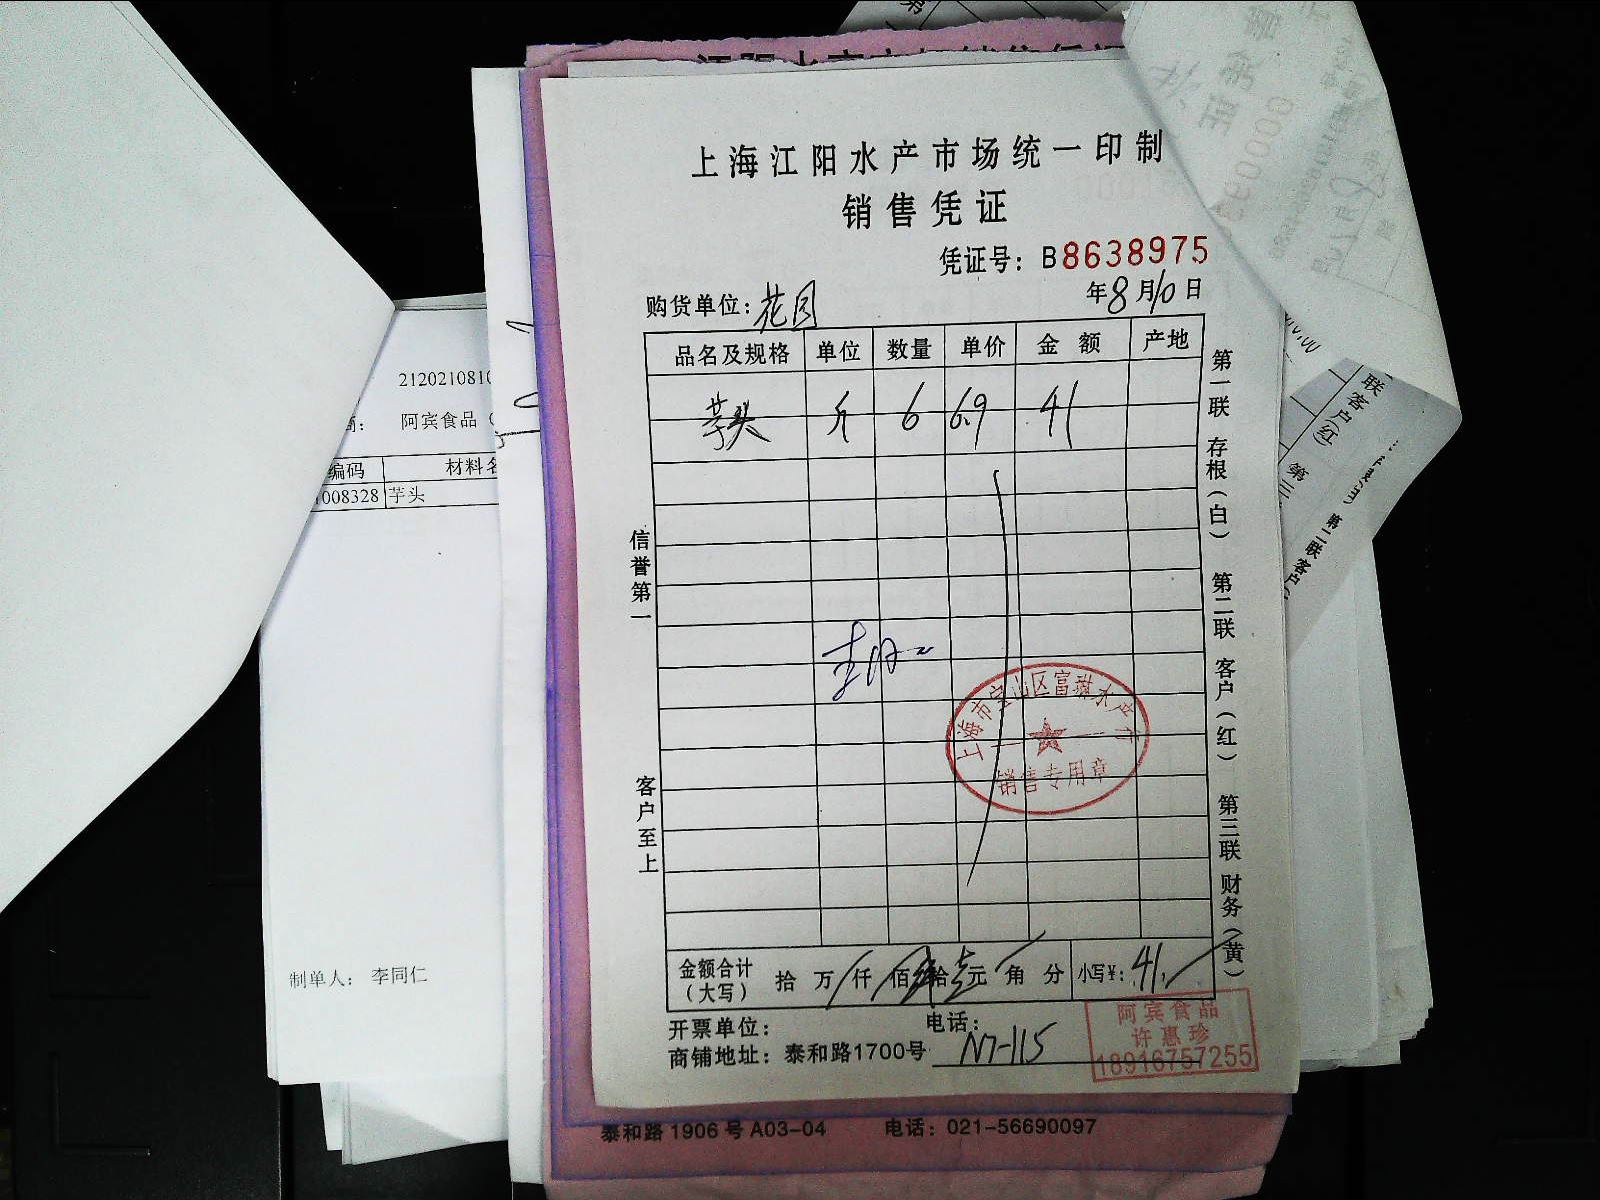 上海江阳水产市场统一印制
销售凭证
凭证号：B8638975
购货单位：花园
年8月10日
品名及规格 单位 数量 单价 金额 产地
芋头 斤 6 6.9 41
信誉第一
客户至上
第一联 存根（白） 第二联 客户（红） 第三联 财务（黄）
上海市宝山区富祥水产行
销售专用章
金额合计（大写） 拾 万 仟 佰 肆拾壹元 角 分 小写¥：41.
开票单位： 电话：
商铺地址：泰和路1700号 N7-115
阿宾食品
许惠珍
18916757255
泰和路1906号A03-04 电话：021-56690097
2120210810
商： 阿宾食品（
编码 材料名
008328 芋头
制单人： 李同仁
联客户（红） 第三
第二联客户